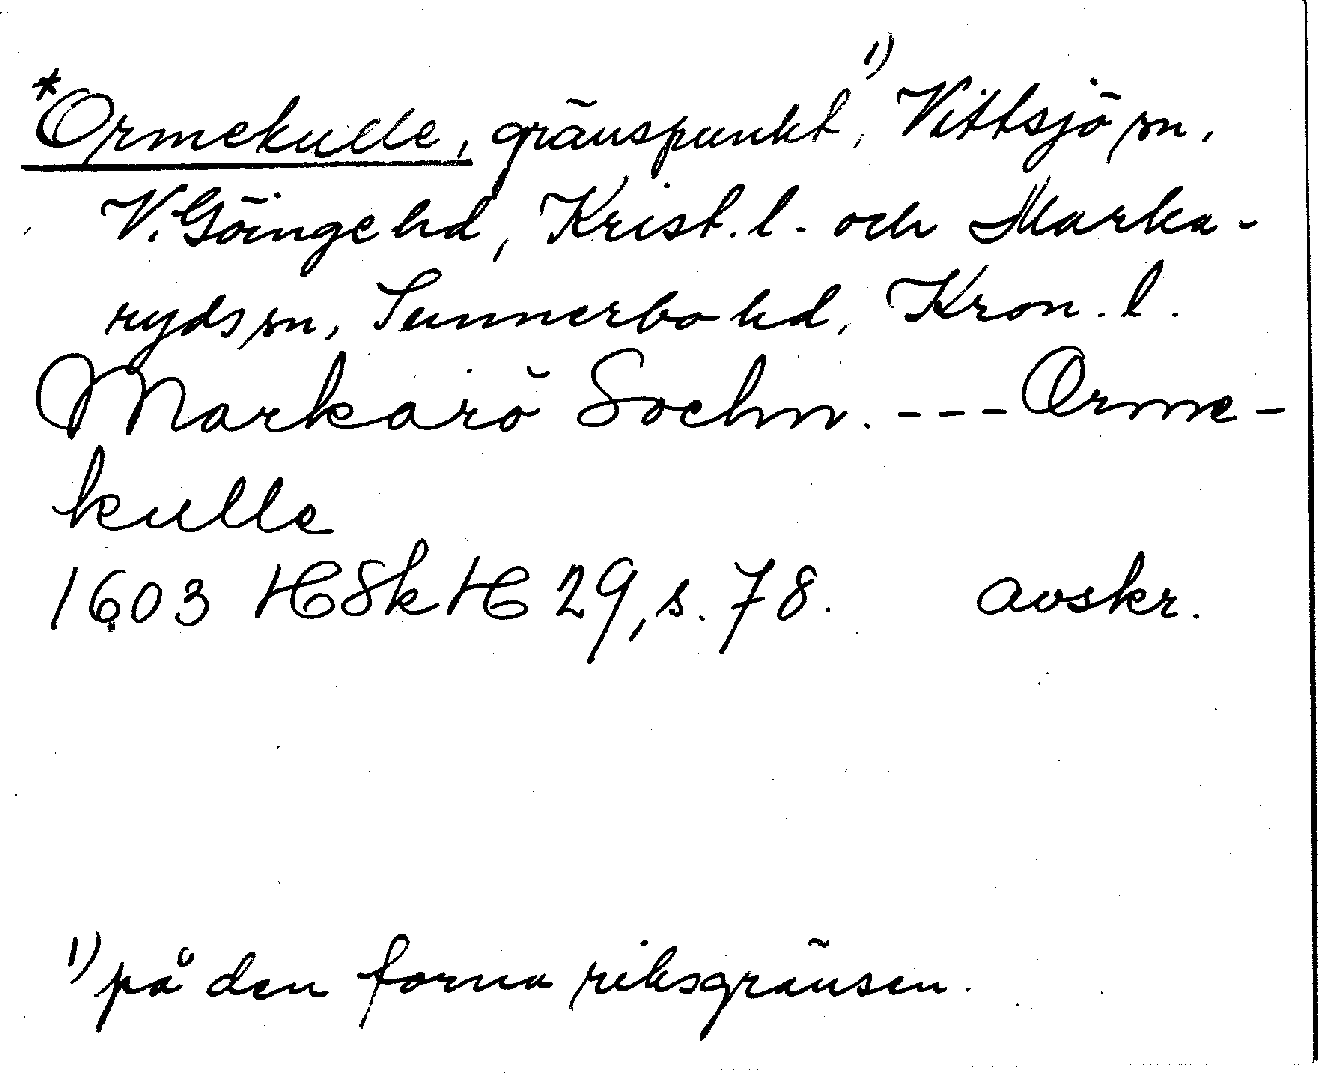 *Ormekulle, gränspunkt¹⁾, Vittsjö sn,
V. Göinge hd, Krist. l. och Marka-
ryds sn, Sunnerbo hd, Kron. l.
Markarö̆ Sochn. --- Orme-
kulle
1603 HSkH 29, s. 78. avskr.
¹⁾ på den forna riksgränsen.